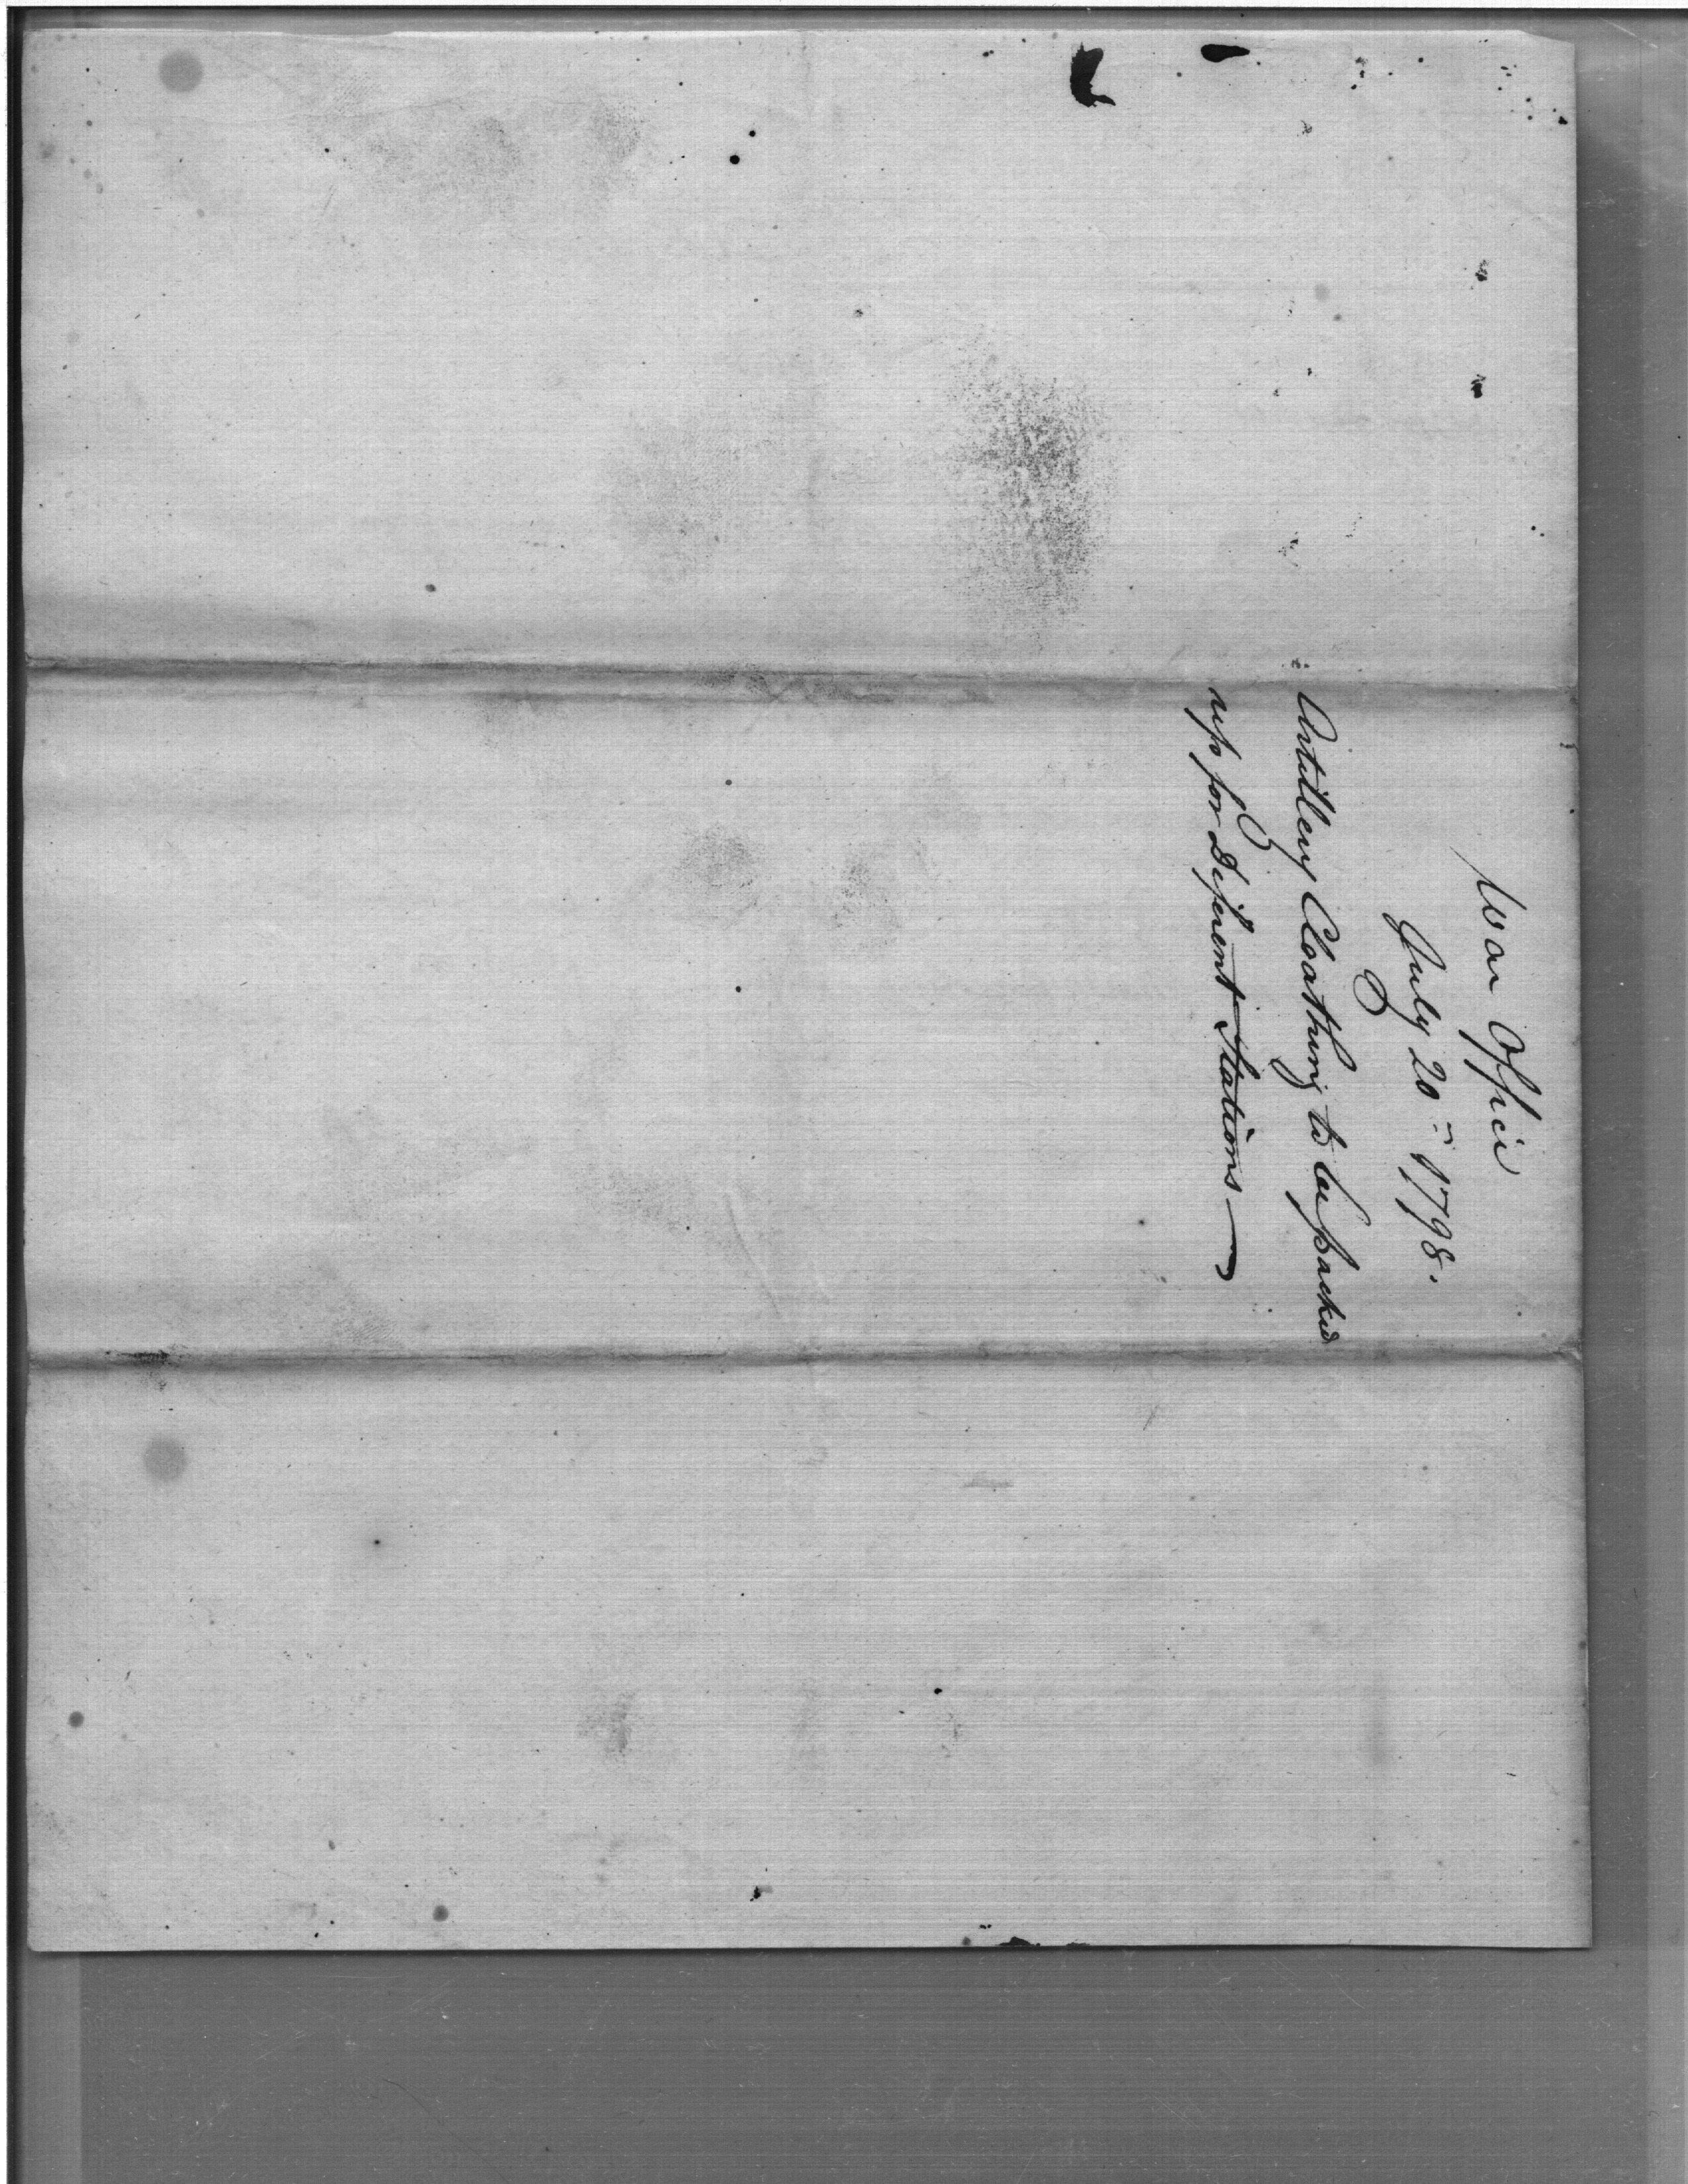 War Office
July 20th 1798.
Artillery Cloathing to be packed
up for Diferent Stations —